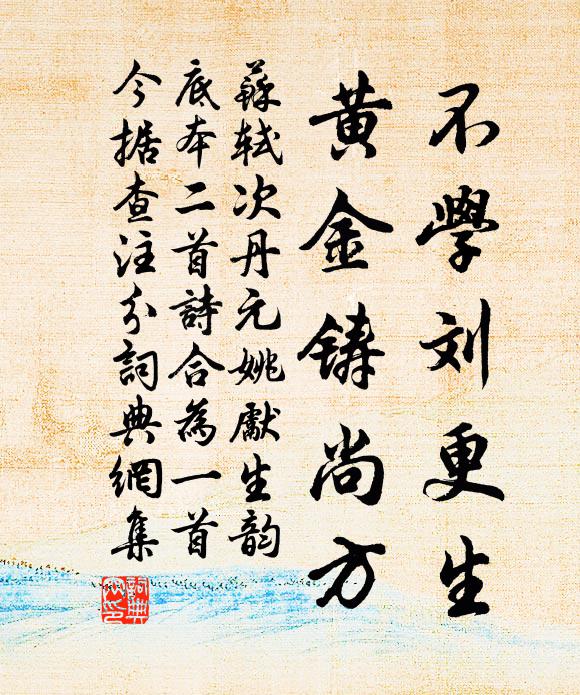 不學刘更生
黄金鋳尚方
蘇軾次丹元姚獻生韵
底本二首詩合為一首
今据查注分詞典網集